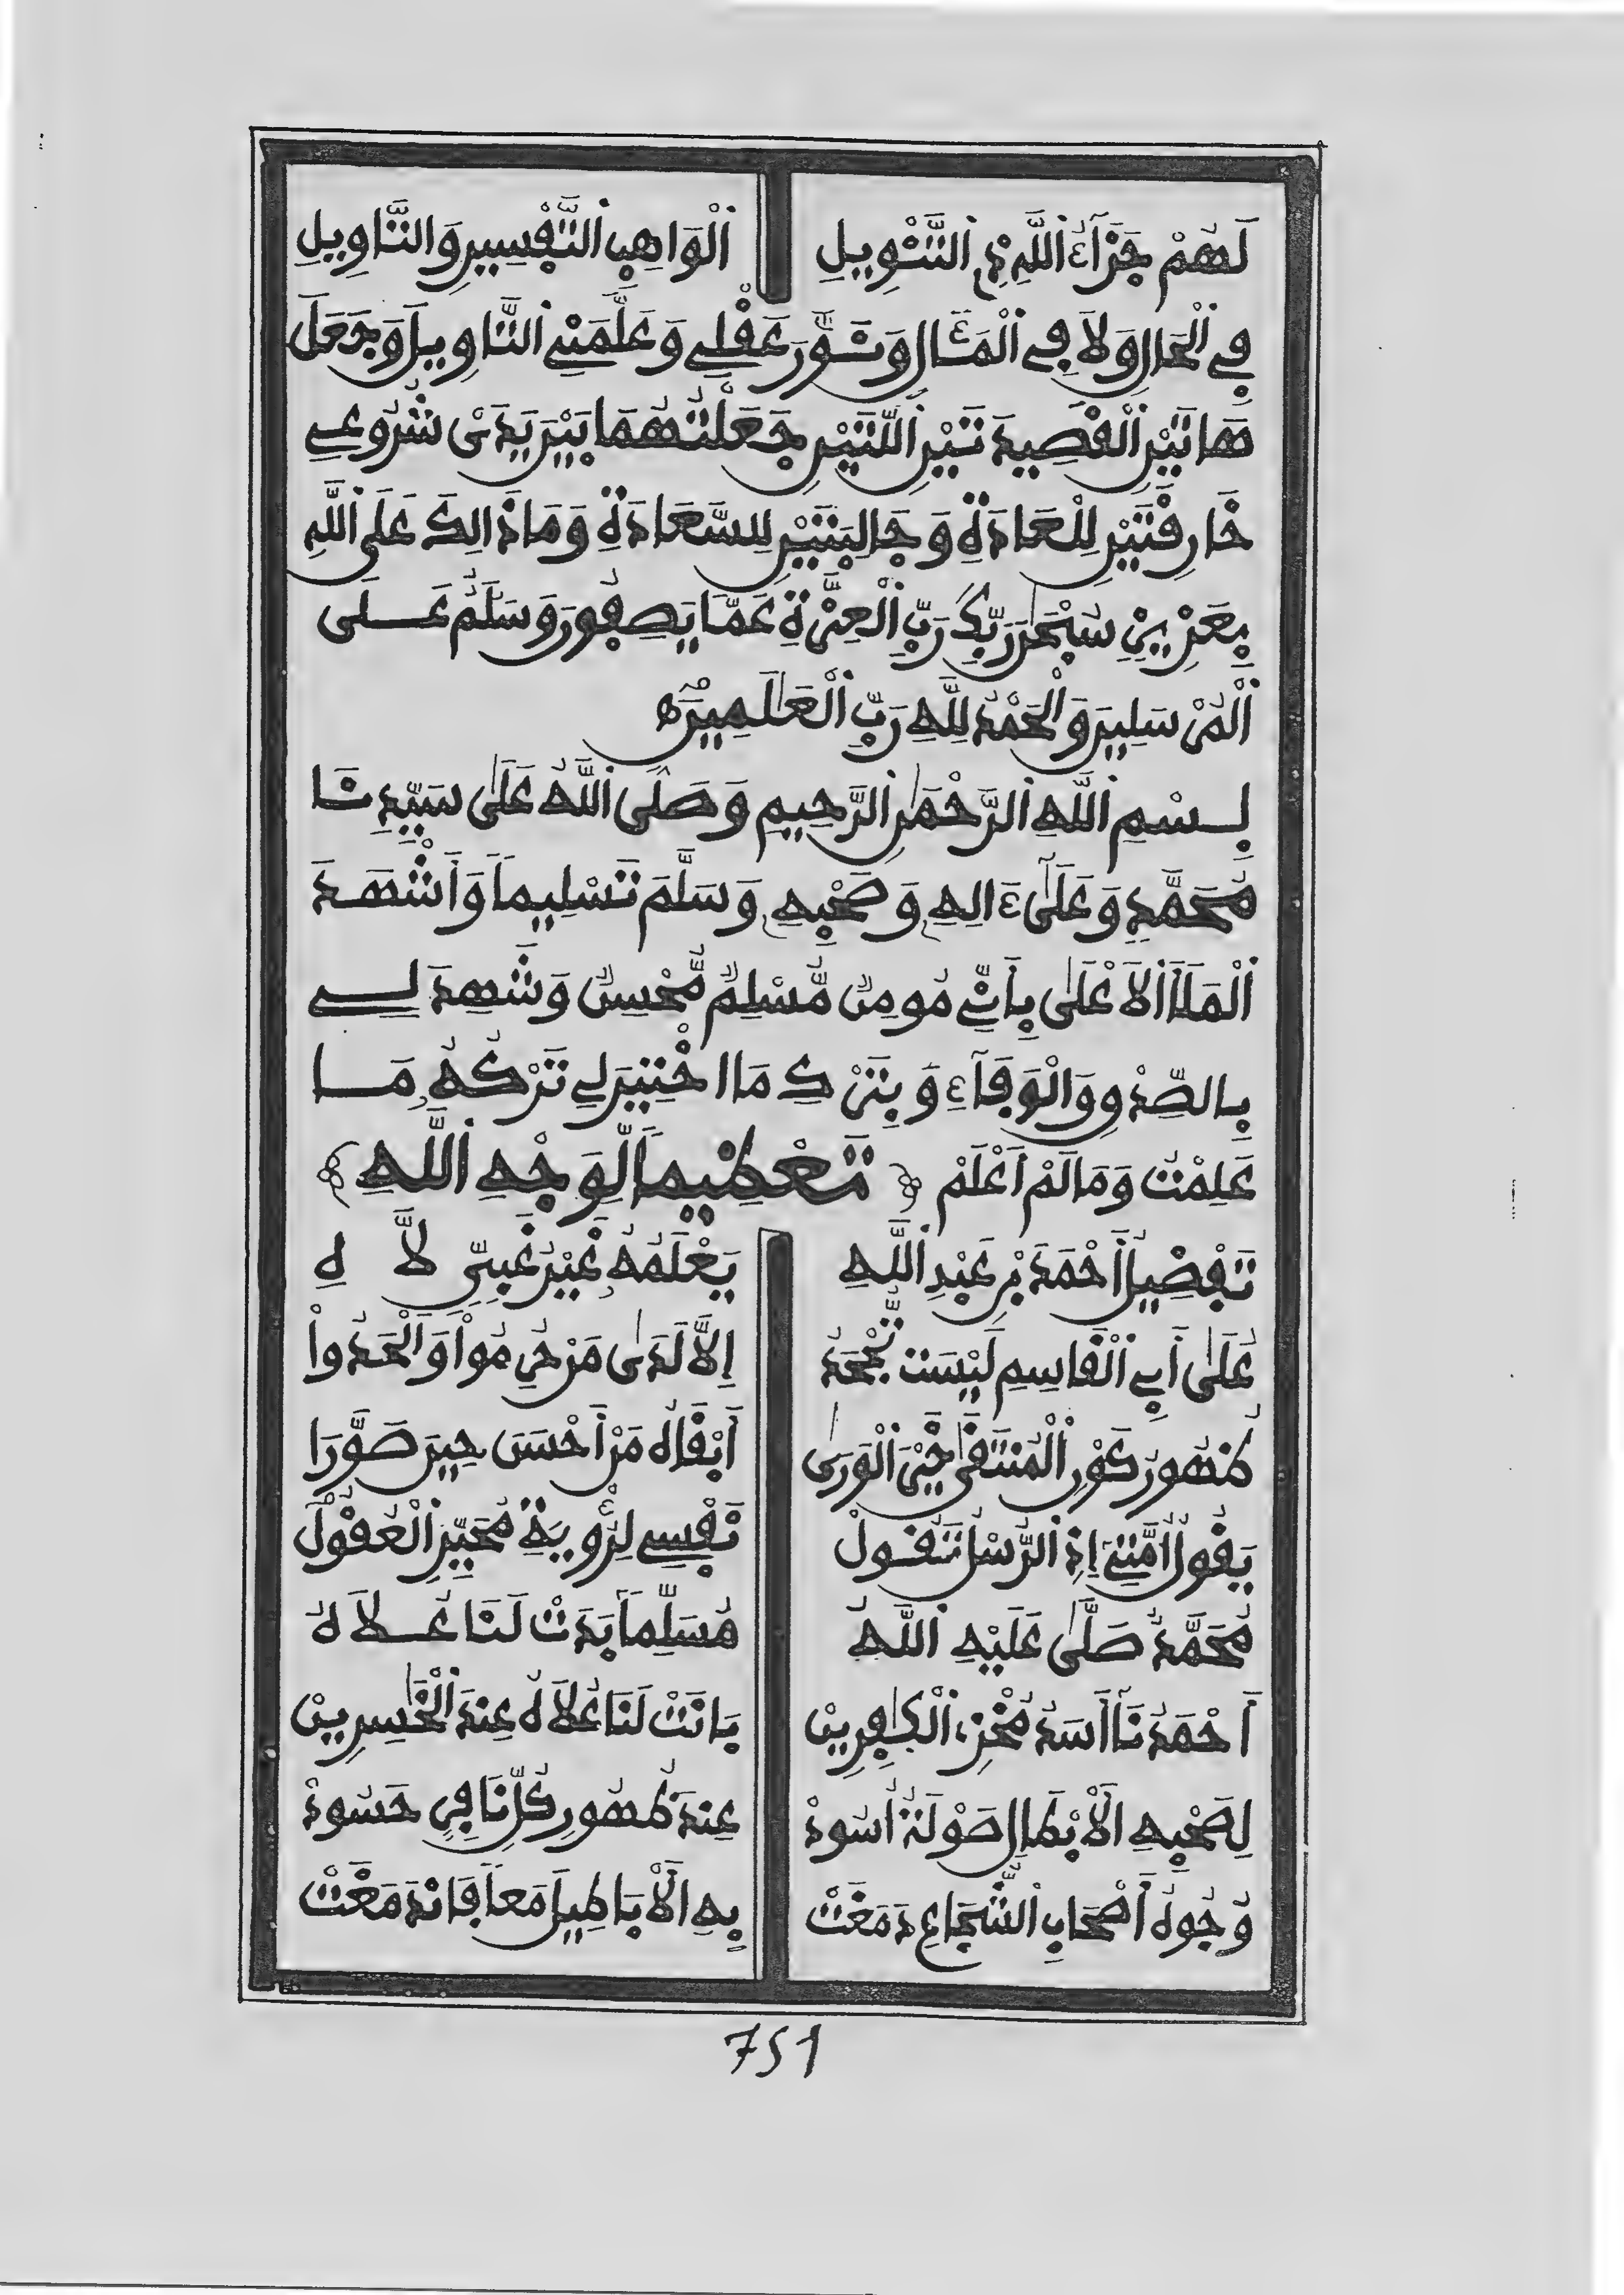 لَهُمْ جَزَآءُ اللَّهِ ذِي التَّنْوِيلِ الْوَاهِبِ التَّفْسِيرِ وَالتَّاوِيلِ
فِي الْحَالِ وَلَا فِي الْمَئَالِ وَنَوَّرَ عَقْلِي وَعَلَّمَنِي التَّاوِيلَ وَجَعَلَ
هَاتَيْنِ الْقَصِيدَتَيْنِ اللَّتَيْنِ جَعَلْتُهُمَا بَيْنَ يَدَىْ شُرُوعِي
خَارِقَتَيْنِ لِلْعَادَةِ وَجَالِبَتَيْنِ لِلسَّعَادَةِ وَمَا ذَالِكَ عَلَى اللَّهِ
بِعَزِيزٍ سُبْحَٰنَ رَبِّكَ رَبِّ الْعِزَّةِ عَمَّا يَصِفُونَ وَسَلَٰمٌ عَلَى
الْمُرْسَلِينَ وَالْحَمْدُ لِلَّهِ رَبِّ الْعَٰلَمِينَ
بِسْمِ اللَّهِ الرَّحْمَٰنِ الرَّحِيمِ وَصَلَّى اللَّهُ عَلَىٰ سَيِّدِنَا
مُحَمَّدٍ وَعَلَىٰٓ ءَالِهِ وَصَحْبِهِ وَسَلَّمَ تَسْلِيماً وَأُشْهِدُ
الْمَلَأَ الْأَعْلَىٰ بِأَنِّي مُومِنٌ مُّسْلِمٌ مُّحْسِنٌ وَشَهِدَ لِي
بِالصِّدْقِ وَالْوَفَآءِ وَبِتَرْكِ مَا اخْتِيرَ لِي تَرْكُهُ مَا
عَلِمْتُ وَمَا لَمْ أَعْلَمْ ﴿ تَعْظِيماً لِّوَجْهِ اللَّهِ ﴾
تَفْضِيلُ أَحْمَدَ بْنِ عَبْدِ اللَّهِ يَعْلَمُهُ غَيْرُ غَبِيٍّ لَّاهِ
عَلَىٰ أَبِي الْقَاسِمِ لَيْسَتْ تُّجْحَدُ إِلَّا لَدَىٰ مَنْ حُرِمُواْ وَأَلْحَدُواْ
ظُهُورُ كَوْنِ الْمُنتَقَىٰ خَيْرَ الْوَرَىٰ أَبْقَاهُ مَنْ أَحْسَنَ حِينَ صَوَّرَا
يَقُولُ أُمَّتِيَ إِذِ الرُّسْلُ تَقُولْ نَفْسِي لِرُؤْيَةِ مُحَيِّرِ الْعُقُولْ
مُحَمَّدٌ صَلَّىٰ عَلَيْهِ اللَّهُ مُسَلِّماً بَدَتْ لَنَا عُلَاهُ
أَحْمَدُنَا أَسَدُ مُخْزِي الْكَٰفِرِينْ بَانَتْ لَنَا عُلَاهُ عِندَ الْخَٰسِرِينْ
لِصَحْبِهِ الْأَبْطَالِ صَوْلَةُ أُسُودْ عِندَ ظُهُورِ كُلِّ نَافٍ حَسُودْ
وُجُوهُ أَصْحَابِ الشُّجَاعِ دَمَغَتْ بِهِ الْأَبَاطِيلَ مَعاً فَانْدَمَغَتْ
751